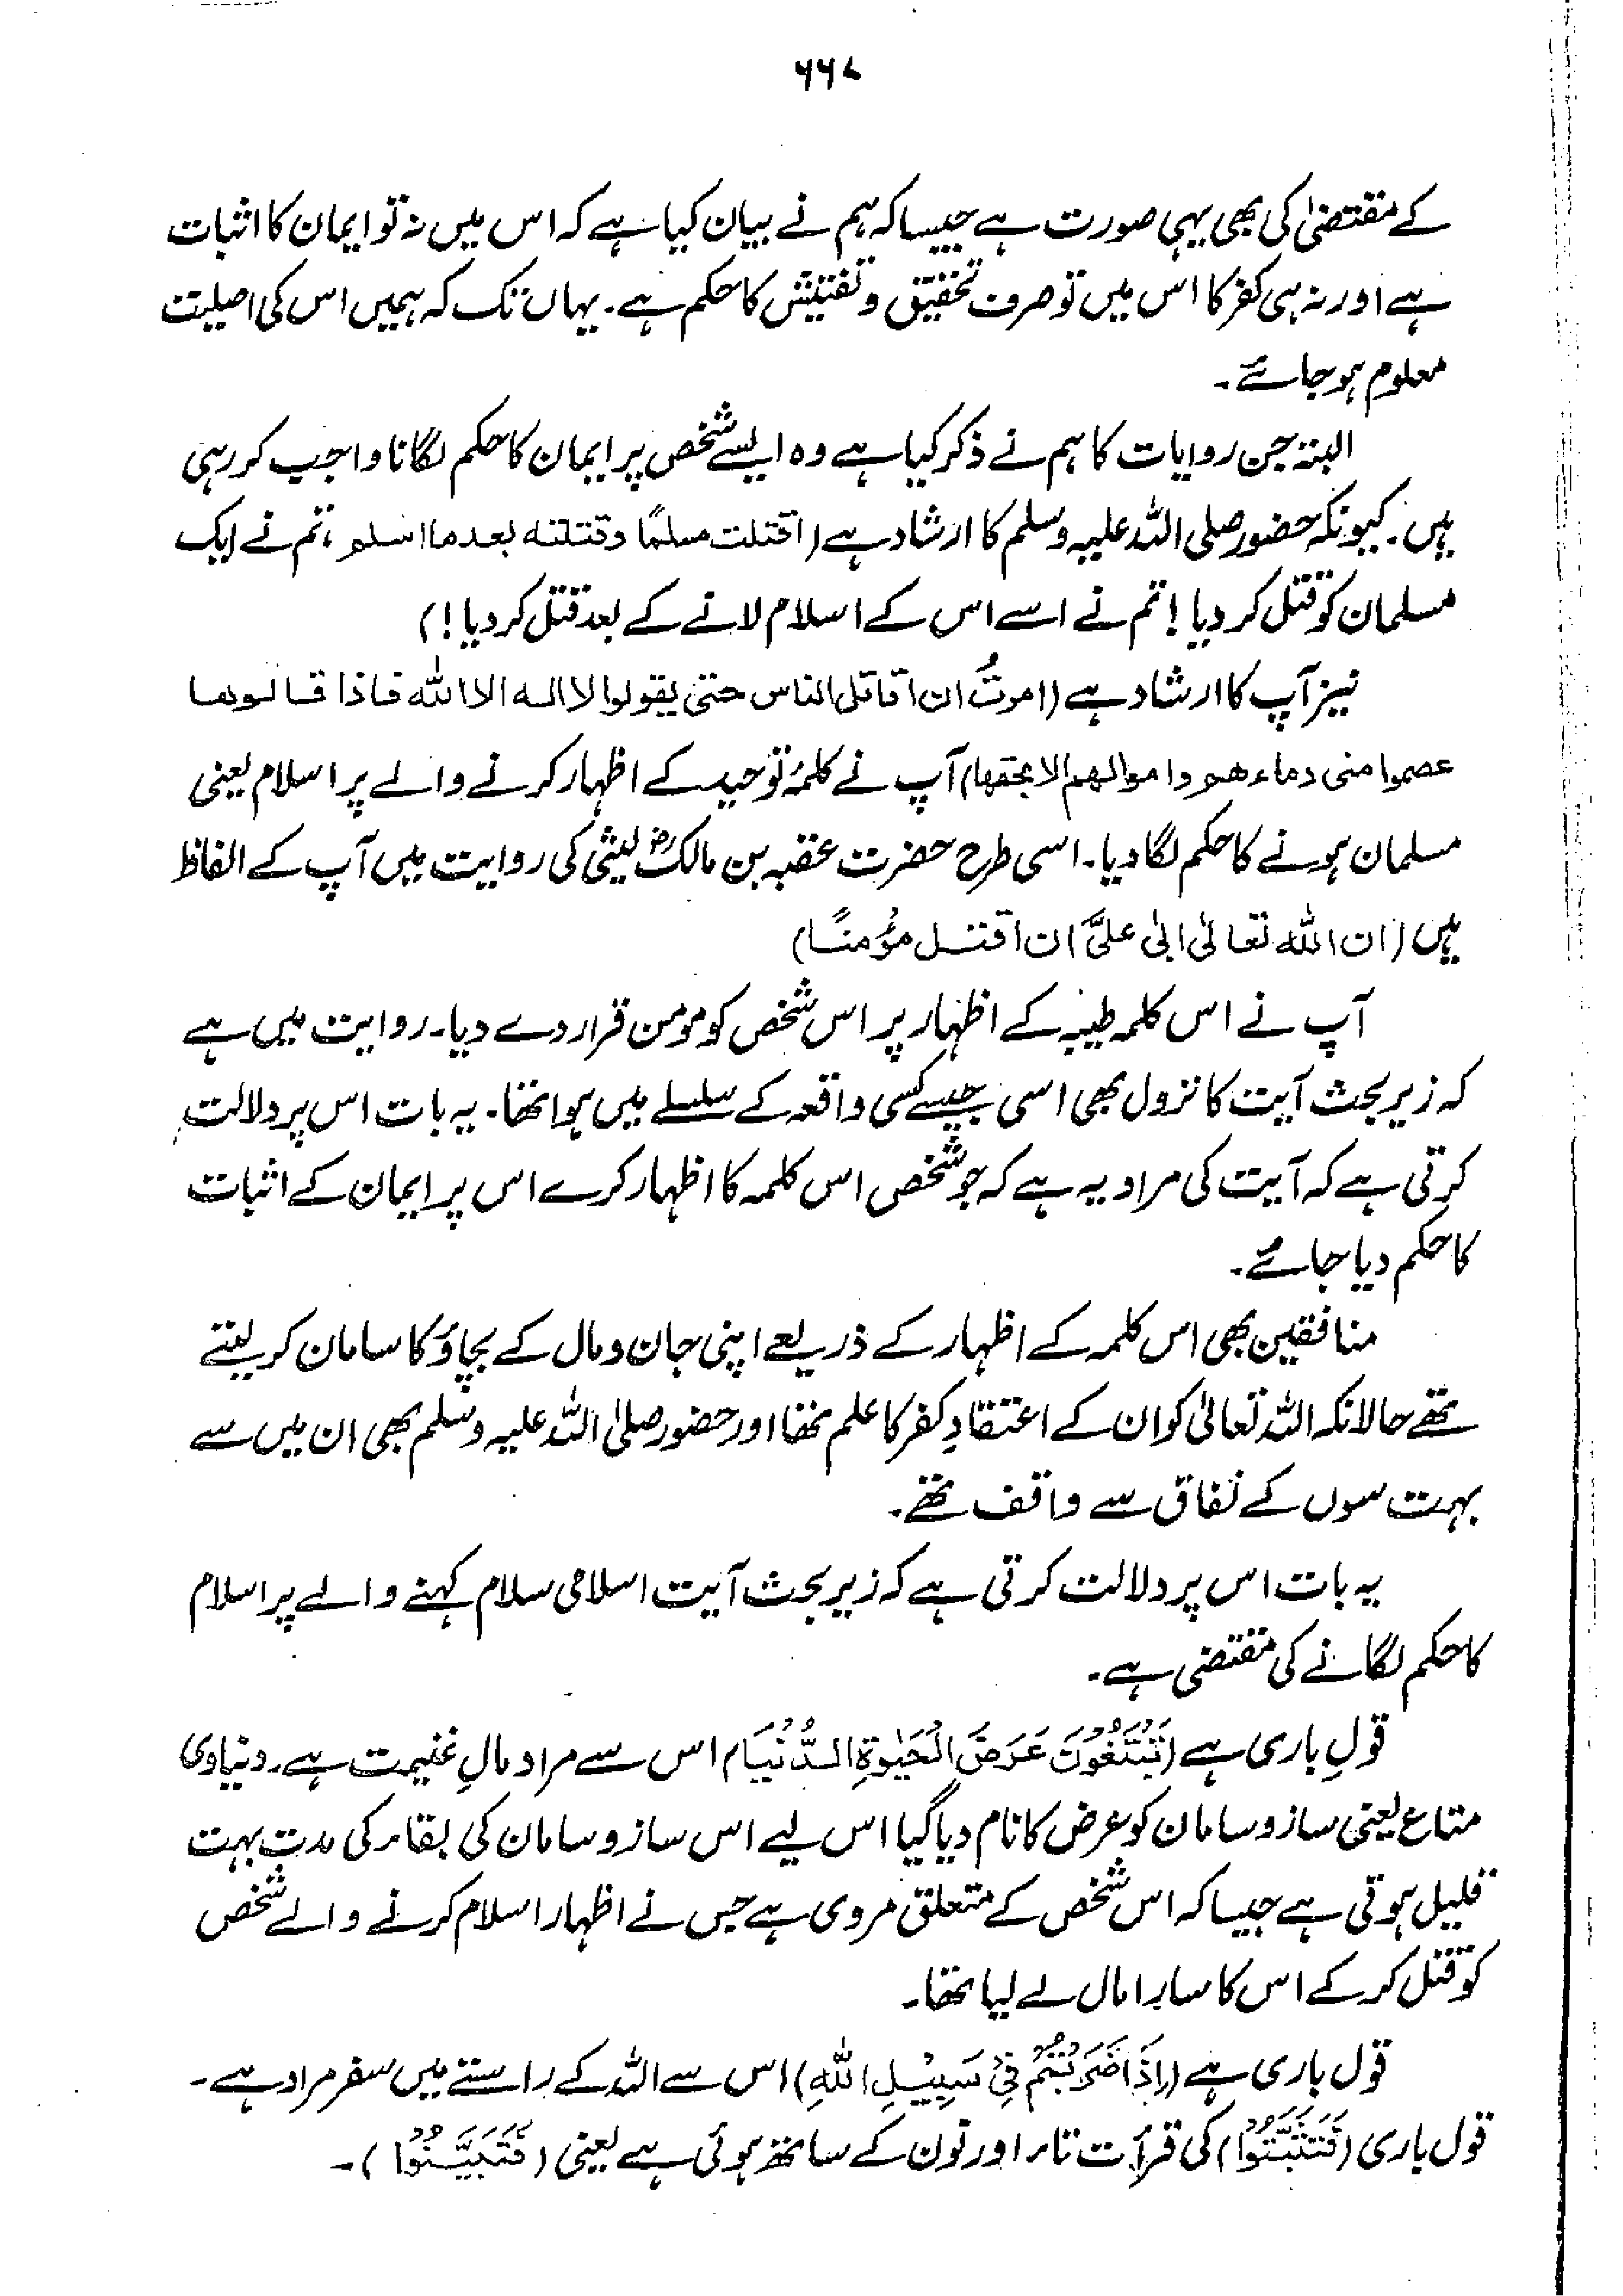 ۶۶۷
کے مقتضیٰ کی بھی یہی صورت ہے جیسا کہ ہم نے بیان کیا ہے کہ اس میں نہ تو ایمان کا اثبات
ہے اور نہ ہی کفر کا اس میں تو صرف تحقیق و تفتیش کا حکم ہے۔ یہاں تک کہ ہمیں اس کی اصلیت
معلوم ہو جائے۔
البتہ جن روایات کا ہم نے ذکر کیا ہے وہ ایسے شخص پر ایمان کا حکم لگانا واجب کر رہی
ہیں۔ کیونکہ حضور صلی اللہ علیہ وسلم کا ارشاد ہے (اقتلت مسلمًا وقتلته بعد ما اسلم، تم نے ایک
مسلمان کو قتل کر دیا! تم نے اسے اس کے اسلام لانے کے بعد قتل کر دیا!)
نیز آپ کا ارشاد ہے (امرتُ ان اقاتل الناس حتیٰ یقولوا لا الہ الا اللہ فاذا قالوھا
عصموا منی دماءھم واموالھم الا بحقھا) آپ نے کلمۂ توحید کے اظہار کرنے والے پر اسلام یعنی
مسلمان ہونے کا حکم لگا دیا۔ اسی طرح حضرت عقبہ بن مالکؓ لیثی کی روایت میں آپ کے الفاظ
ہیں (ان اللہ تعالیٰ ابیٰ علیَّ ان اقتل مؤمنًا)
آپ نے اس کلمہ طیبہ کے اظہار پر اس شخص کو مومن قرار دے دیا۔ روایت میں ہے
کہ زیر بحث آیت کا نزول بھی اسی جیسے کسی واقعہ کے سلسلے میں ہوا تھا۔ یہ بات اس پر دلالت
کرتی ہے کہ آیت کی مراد یہ ہے کہ جو شخص اس کلمہ کا اظہار کرے اس پر ایمان کے اثبات
کا حکم دیا جائے۔
منافقین بھی اس کلمہ کے اظہار کے ذریعے اپنی جان و مال کے بچاؤ کا سامان کر لیتے
تھے حالانکہ اللہ تعالیٰ کو ان کے اعتقادِ کفر کا علم تھا اور حضور صلی اللہ علیہ وسلم بھی ان میں سے
بہت سوں کے نفاق سے واقف تھے۔
یہ بات اس پر دلالت کرتی ہے کہ زیر بحث آیت اسلامی سلام کہنے والے پر اسلام
کا حکم لگانے کی مقتضی ہے۔
قولِ باری ہے (تَبْتَغُوْنَ عَرَضَ الْحَيٰوةِ الدُّنْيَا) اس سے مراد مالِ غنیمت ہے۔ دنیاوی
متاع یعنی ساز و سامان کو عرض کا نام دیا گیا اس لیے اس ساز و سامان کی بقاء کی مدت بہت
قلیل ہوتی ہے جیسا کہ اس شخص کے متعلق مروی ہے جس نے اظہار اسلام کرنے والے شخص
کو قتل کر کے اس کا سارا مال لے لیا تھا۔
قول باری ہے (اِذَا ضَرَبْتُمْ فِیْ سَبِيْلِ اللهِ) اس سے اللہ کے راستے میں سفر مراد ہے۔
قول باری (فَتَثَبَّتُوْا) کی قرأت تاء اور نون کے ساتھ ہوئی ہے یعنی (فَتَبَيَّنُوْا)۔